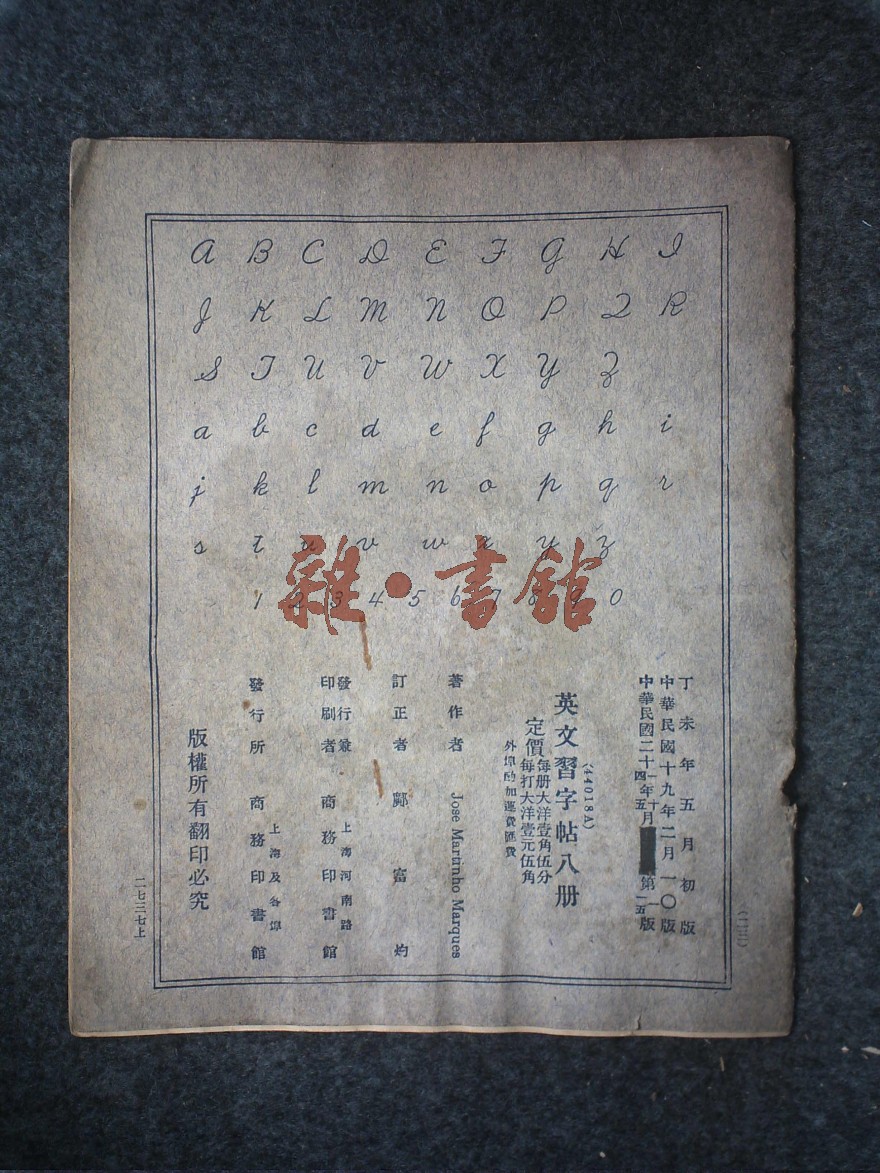 A B C D E F G H I
J K L M N O P Q R
S T U V W X Y Z
a b c d e f g h i
j k l m n o p q r
s t u v w x y z
1 2 3 4 5 6 7 8 9 0
雜·書館
丁未年五月初版
中華民國十九年二月一〇版
中華民國二十
第
版
(44018A)
英文習字帖八册
定價
每册大洋壹角伍分
每打大洋壹元伍角
外埠酌加運費匯費
著作者 Jose Martinho Marques
訂正者 鄺富灼
發行兼
印刷者 上海河南路
商務印書館
發行所 上海及各埠
商務印書館
版權所有翻印必究
二七三七上